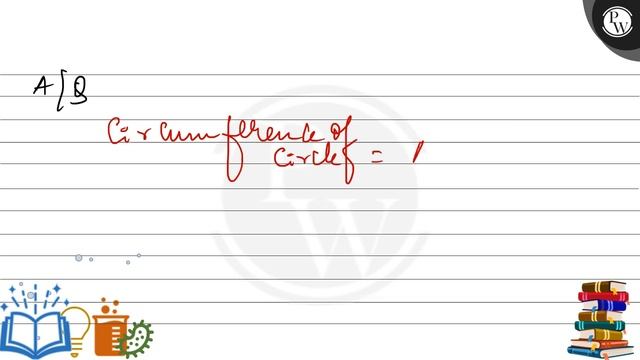 PW
A/Q
Circumference of
circle =
PW